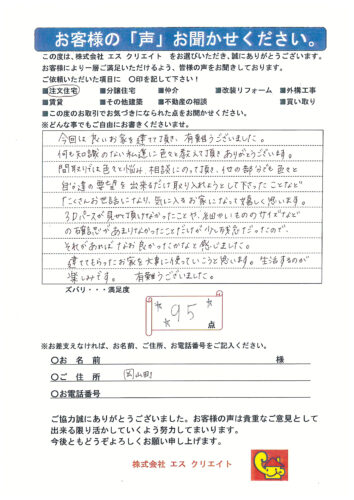 お客様の「声」お聞かせください。
この度は、株式会社 エス クリエイト をお選びいただき、誠にありがとうございます。
お客様により一層ご満足いただけるよう、皆様の声をお聞きしております。
ご依頼いただいた項目に ○印を記して下さい！
■注文住宅 ■分譲住宅 ■仲介 ■改装リフォーム ■外構工事
■賃貸 ■その他建築 ■不動産の相談 ■買い取り
■この度のお取引でお気づきになられた点をお聞かせください。
※どんな事でもご自由にお書きくださいませ。
今回は良いお家を建てて頂き、有難うございました。
何も知識のない私達に色々と教えて頂きありがとうございます。
間取りでは色々と悩み相談にのって頂き、他の部分でも色々と
自分達の要望を出来るだけ取り入れようとして下さったことなど
たくさんお世話になり、気に入るお家になって嬉しく思います。
3Dパースが見せて頂けなかったことや、細かいもののサイズなど
の確認があまりなかったことだけが少し残念だったので、
それがあればなお良かったかなと感じました。
建ててもらったお家を大事に使っていこうと思います。生活するのが
楽しみです。 有難うございました。
ズバリ・・・満足度
95
点
※お差支えなければ、お名前、ご住所、お電話番号をご記入ください。
○お 名 前 様
○ご 住 所 岡山町
○お電話番号
ご協力誠にありがとうございました。お客様の声は貴重なご意見として
出来る限り活かしていくよう努力してまいります。
今後ともどうぞよろしくお願い申し上げます。
株式会社 エス クリエイト